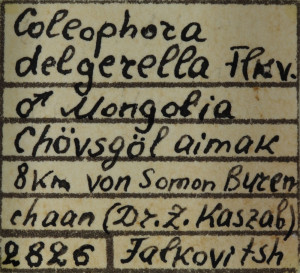 Coleophora
delgerella Flkv.
♂ Mongolia
Chövsgöl aimak
8 Km von Somon Buren
chaan (Dr. Z. Kaszab)
2826 Falkovitsh